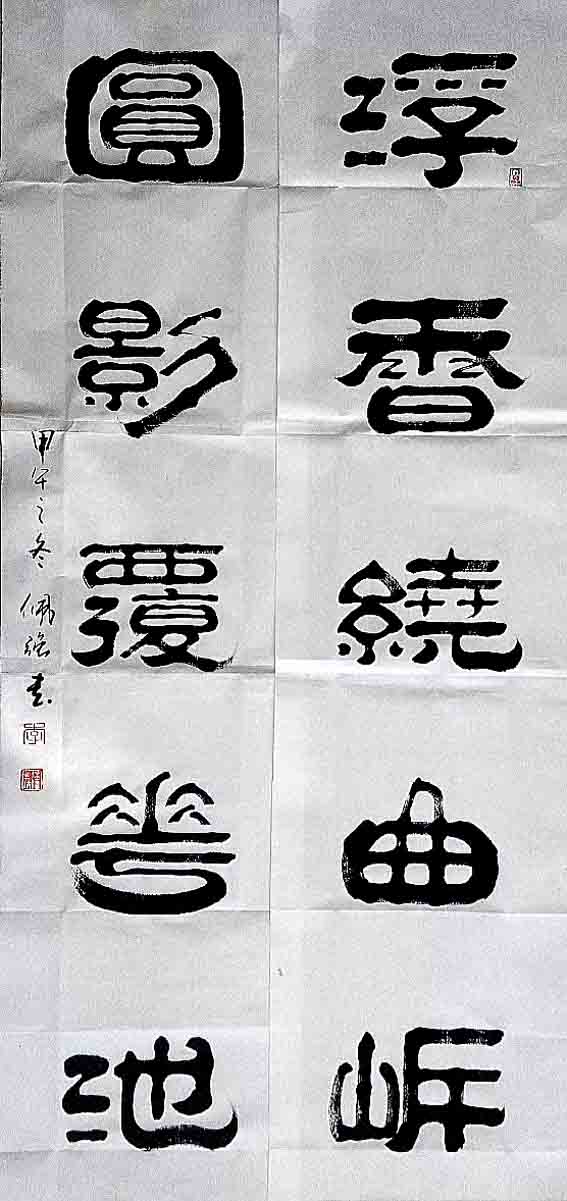 浮香繞曲岸
圓影覆華池
甲午之冬 佩強書